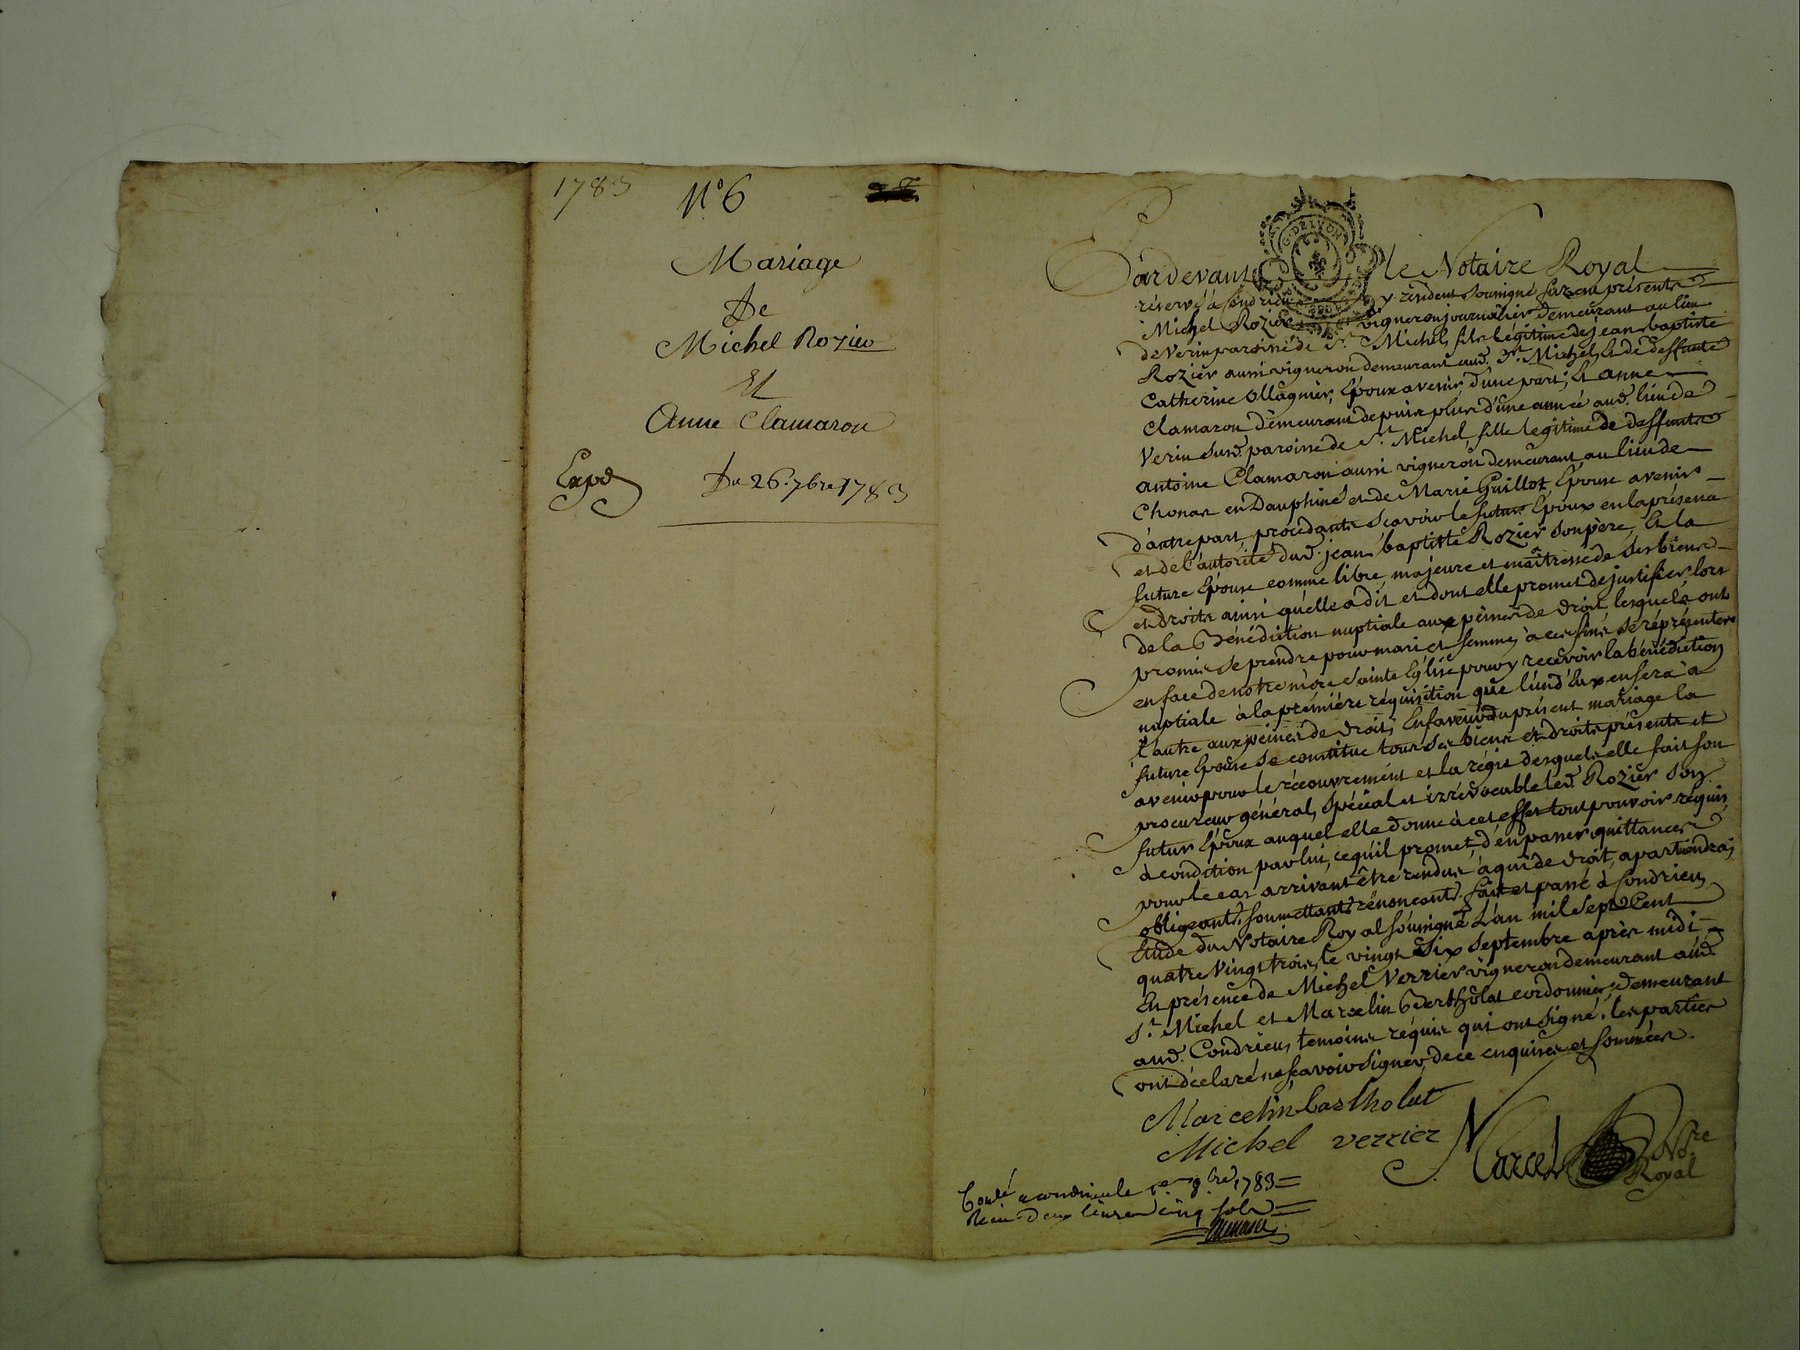 1783
N° 6
Mariage
De
Michel Rozier
Et
Anne Clamaron
Expé
Du 26. 7bre 1783
G. DE LYON
Pardevant le Notaire Royal
réservé à Condrieu y résident soussigné furent présents
Michel Rozier vigneron journalier demeurant au lieu
de Verin paroisse de St. Michel, fils légitime de jean baptiste
Rozier aussi vigneron demeurant aud. St. Michel, & de deffunte
Catherine Ollagnier, Epoux avenir, d'une part; Et anne
Clamaron demeurant depuis plus d'une année aud. lieu de
Verin susd. paroisse de St. Michel, fille legitime de deffunts
antoine Clamaron aussi vigneron demeurant au lieu de
Chonas en Dauphiné et de Marie Guillot, Epouse avenir
d'autre part, procédants sçavoir le futur Epoux en la présence
et de l'autorité dud. jean baptiste Rozier son père, Et la
future Epouse comme libre, majeure et maîtresse de ses biens
et droits ainsi qu'elle a dit et dont elle promet de justifier lors
de la Bénédiction nuptiale aux peines de droit, lesquels ont
promis se prendre pour mari et femme, à ces fins se réprésenter
en face de notre mère sainte Eglise pour y recevoir la bénédiction
nuptiale à la première réquisition que l'un d'Eux en fera à
l'autre aux peines de droit; En faveur du présent mariage la
future Epouse se constitue tous ses biens et droits présents et
avenir pour le récouvrement et la régie desquels elle fait son
procureur général, spécial et irrévocable led. Rozier son
futur Epoux auquel elle donne à cet effet tout pouvoir réquis
à condition par lui, ce qu'il promet, d'en passer quittances
pour le cas arrivant être rendus à qui de droit, apartiendra;
obligeants, soumettants, rénonçants. fait et passé à Condrieu
Etude du Notaire Royal soussigné L'an mil sept Cent
quatre vingt trois, le vingt six septembre après midi
En présence de Michel Verrier vigneron demeurant aud.
St. Michel et Marcelin Bertholat cordonnier, demeurant
aud. Condrieu, temoins réquis qui ont signé, les parties
ont déclaré ne sçavoir signer, de ce enquises et sommées.
Marcelin bartholat
Michel verrier
Marcel Nore
Royal
Conlé a condrieu le 1er 9bre 1783
Recu deux livres cinq sols